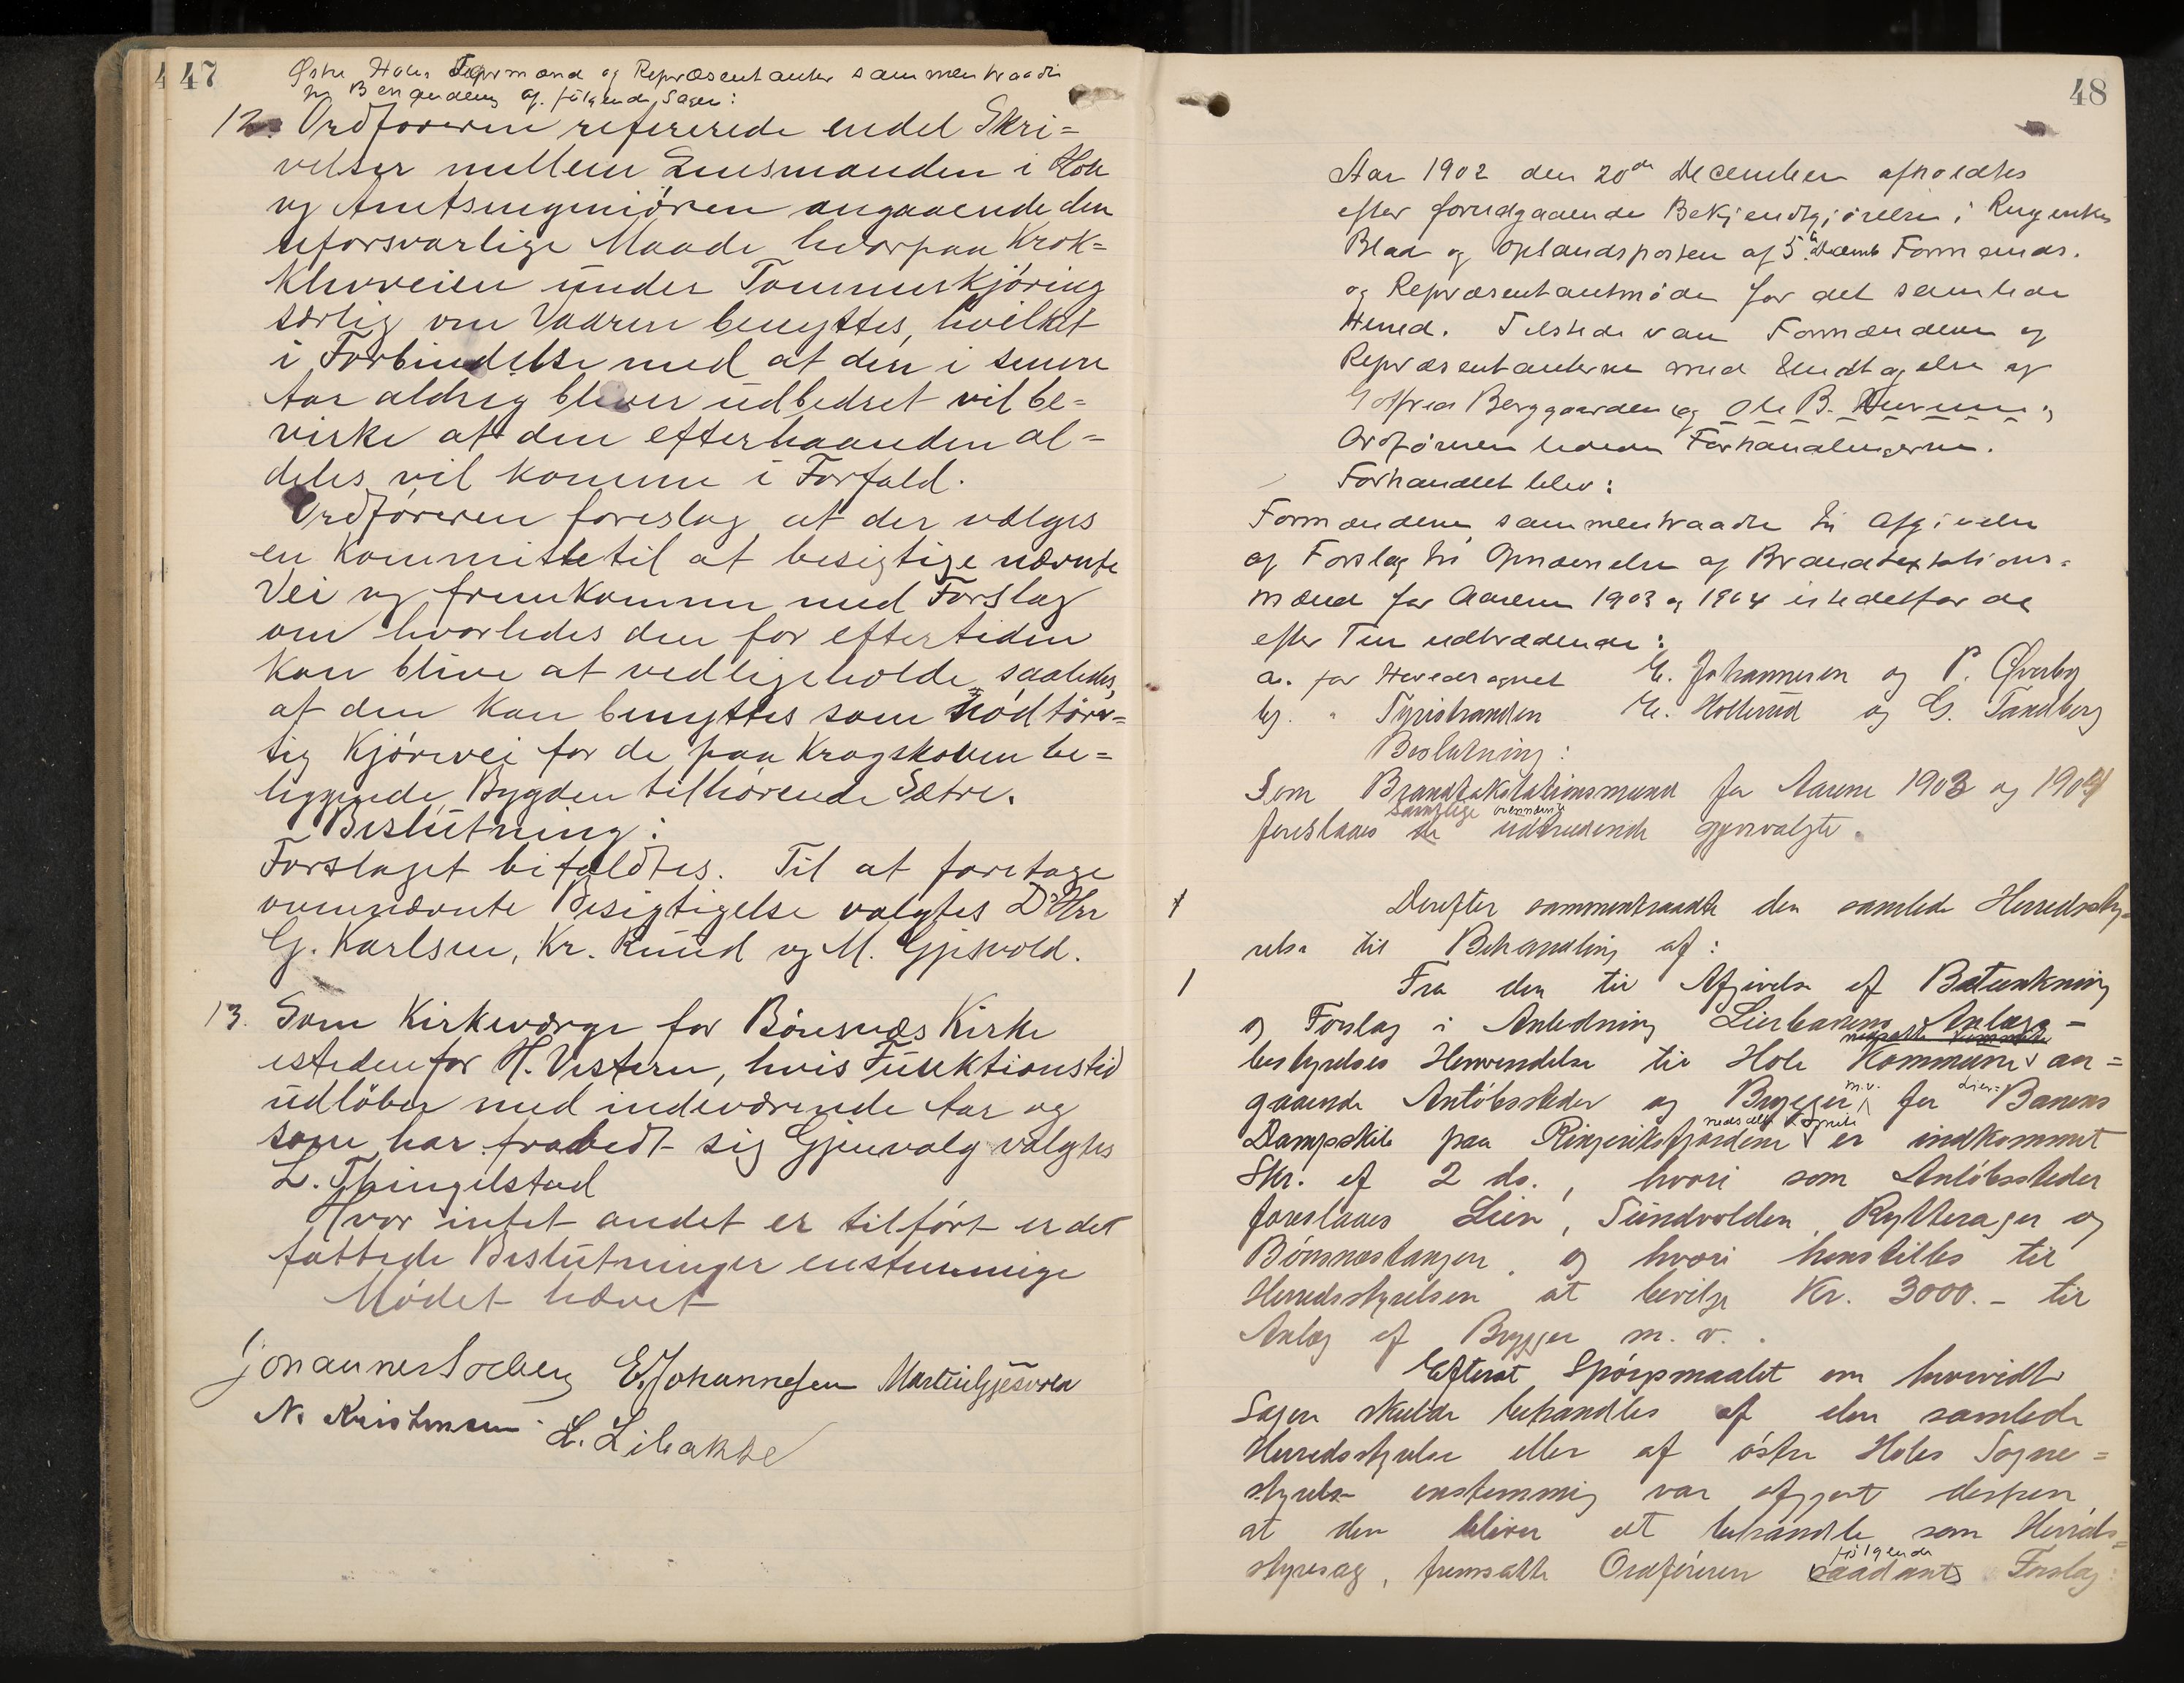 47
Østre Holes Formænd og Repræsentanter sammentraadte
til Behandling af følgende Sager:
12. Ordføreren refererede endel Skri=
velser mellem Lensmanden i Hole
og Amtsingeniøren angaaende den
uforsvarlige Maade hvorpaa Krok=
kleveien under Tømmerkjøring
særlig om Vaaren benyttes, hvilket
i Forbindelse med at den i senere
Aar aldrig bliver udbedret vil be=
virke at den efterhaanden al=
deles vil komme i Forfald.
Ordføreren foreslog at der vælges
en Kommitte til at besigtige nævnte
Vei og fremkomme med Forslag
om hvorledes den for eftertiden
kan blive at vedligeholde saaledes,
at den kan benyttes som nødtørv=
tig Kjørevei for de paa Krogskoven be=
liggende Bygden tilhørende Sætre.
Beslutning:
Forslaget bifaldtes. Til at foretage
ovennævnte Besigtigelse valgtes D'Hrr
G. Karlsen, Kr. Ruud og M. Gjesvold.
13. Som Kirkeværge for Bønsnæs Kirke
istedenfor H. Vestern, hvis Funktionstid
udløber med indeværende Aar og
som har frabedt sig Gjenvalg valgtes
L. Thingelstad
Hvor intet andet er tilført er det
fattede Beslutninger enstemmige
Mødet hævet
Johannes Solberg E. Johannesen Martin Gjesvold
N. Kristensen L. Libakke
48
Aar 1902 den 20de December afholdtes
efter forudgaaende Bekjendtgjørelse i Ringerikes
Blad og Oplandsposten af 5. Decemb Formænds.
og Repræsentantmøde for det samlede
Herred. Tilstede var Formændene og
Repræsentanterne med Undtagelse af
Gotfred Berggaarden og Ole B.
Ordføreren ledede Forhandlingerne.
Forhandlet blev:
Formændene sammentraadte til Afgivelse
af Forslag til Opnævnelse af Brandtaxtations=
mænd for Aarene 1903 og 1904 istedetfor de
efter Tur udtrædende:
a. for Hovedsognet E. Johannesen og P. Øverby
b. " Tyristranden E. Hollerud og G. Tandberg
Beslutning:
Som Brandtakstationsmænd for Aarene 1903 og 1904
samtlige ovennævnte
foreslaaes de udtrædende gjenvalgte.
Derefter sammentraadte den samlede Herredssty=
relse til Behandling af:
1 Fra den til Afgivelse af Betænkning
og Forslag i Anledning Lierbanens Anlægs-
nedsatte
bestyrelses Henvendelse til Hole Kommune an=
m.v. Lier=
gaaende Anløbssteder og Brygger for Banens
nedsatte
Dampskibe paa Ringeriksfjordene er indkommet
Skr. af 2 ds., hvori som Anløbssteder
foreslaaes Lien, Sundvolden, Rytterager og
Bønsnæstangen, og hvori henstilles til
Herredsstyrelsen at bevilge Kr. 3000.- til
Anlæg af Brygger m. v..
Efterat Spørgsmaalet om hvorvidt
Sagen skulde behandles af den samlede
Herredsstyrelse eller af østre Holes Sogne=
styrelse enstemmig var afgjort derhen
at den bliver at behandle som Herreds=
følgende
styresag, fremsatte Ordføreren saadant Forslag: